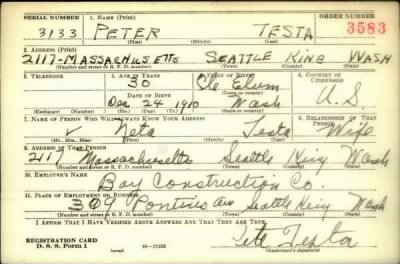 SERIAL NUMBER 1. NAME (Print) ORDER NUMBER
3133 PETER TESTA 3583
(First) (Middle) (Last)
2. ADDRESS (Print)
2117-MASSACHUSETTS SEATTLE KING WASH
(Number and street or R. F. D. number) (Town) (County) (State)
3. TELEPHONE 4. AGE IN YEARS 5. PLACE OF BIRTH 6. COUNTRY OF CITIZENSHIP
30 Cle Elum
DATE OF BIRTH
Dec 24 1910 Wash U.S.
(Exchange) (Number) (Mo.) (Day) (Yr.) (State or country)
7. NAME OF PERSON WHO WILL ALWAYS KNOW YOUR ADDRESS 8. RELATIONSHIP OF THAT PERSON
Neta Testa Wife
(Mr., Mrs., Miss) (First) (Middle) (Last)
9. ADDRESS OF THAT PERSON
2117 Massachusetts Seattle King Wash
(Number and street or R. F. D. number) (Town) (County) (State)
10. EMPLOYER'S NAME
Bay Construction Co.
11. PLACE OF EMPLOYMENT OR BUSINESS
309 Pontius Ave Seattle King Wash
(Number and street or R. F. D. number) (Town) (County) (State)
I AFFIRM THAT I HAVE VERIFIED ABOVE ANSWERS AND THAT THEY ARE TRUE.
REGISTRATION CARD
D. S. S. Form 1 16-17105 (Registrant's signature)
Pete Testa